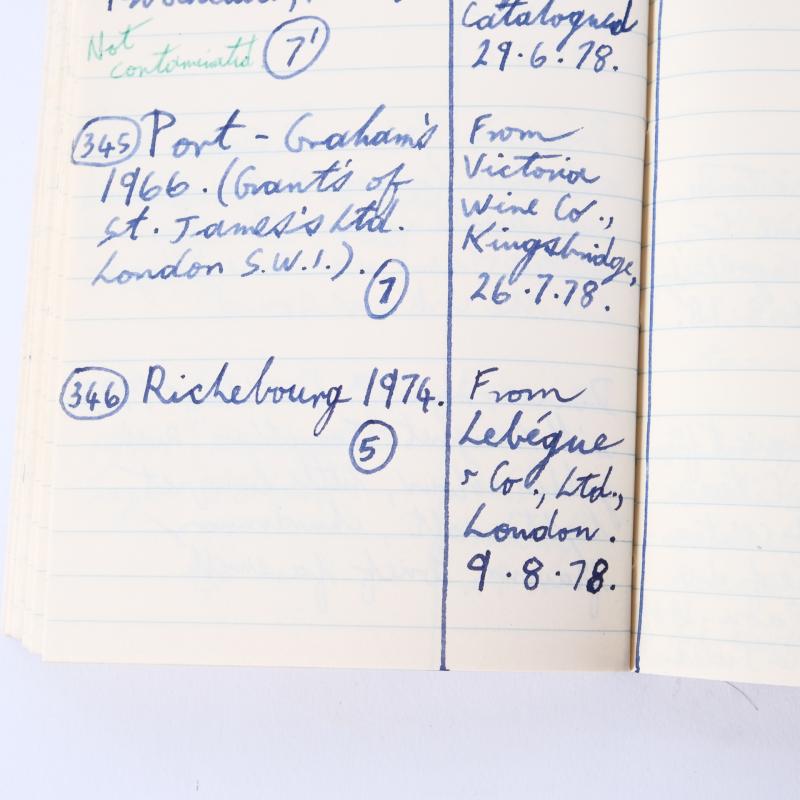 Not
contaminated 7'
Catalogued
29.6.78.
345 Port - Graham's
1966. (Grant's of
St. James's Ltd.
London S.W.1.).
7
From
Victoria
Wine Co.,
Kingsbridge,
26.7.78.
346 Richebourg 1974.
5
From
Lebégue
& Co., Ltd.,
London.
9.8.78.